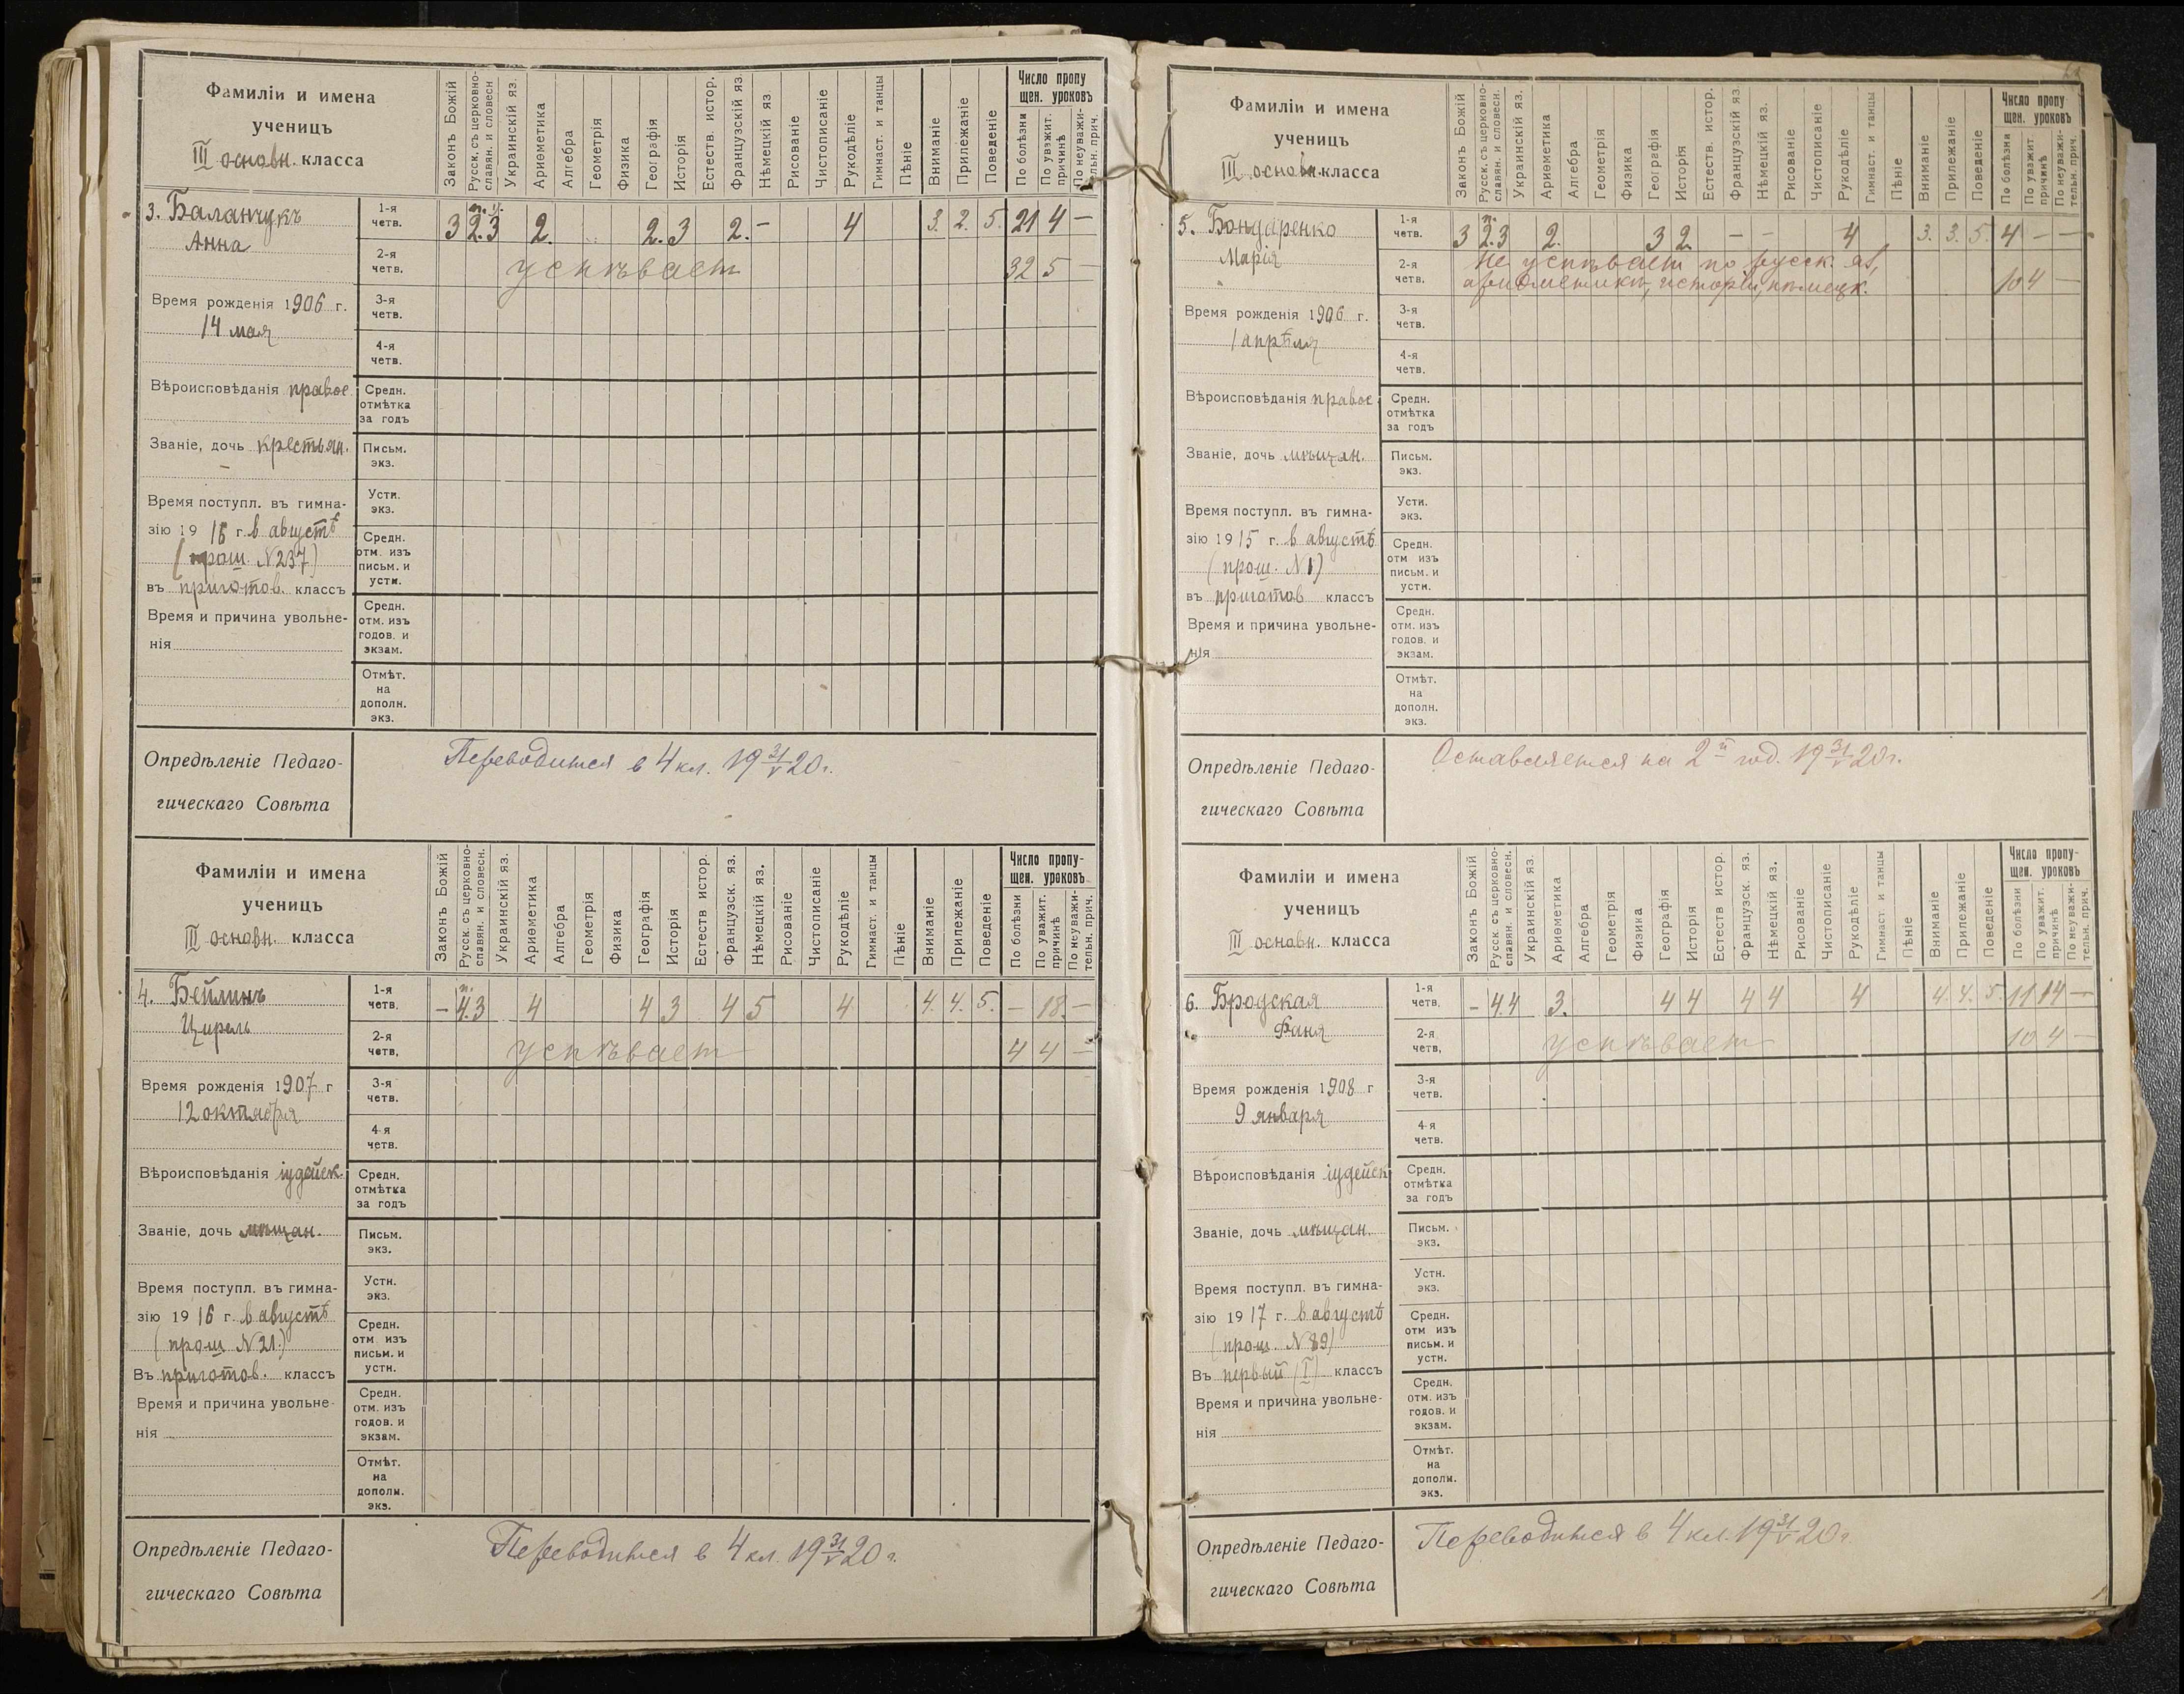 Фамиліи и имена
ученицъ
III основн. класса
Законъ Божій
Русск. съ церковно-
славян. и словесн.
Украинскій яз.
Ариѳметика
Алгебра
Геометрія
Физика
Географія
Исторія
Естеств. истор.
Французскій яз.
Нѣмецкій яз.
Рисованіе
Чистописаніе
Рукодѣліе
Гимнаст. и танцы
Пѣніе
Вниманіе
Прилежаніе
Поведеніе
Число пропу
щен. уроковъ
По болѣзни
По уважит.
причинѣ
По неуважи-
тельн. прич.
3. Баланчукъ
Анна
1-я
четв.
3 2.3 2. 2. 3 2. – 4 3. 2. 5. 21 4 –
2-я
четв.
успѣвает 32 5 –
Время рожденія 1906 г.
14 мая
3-я
четв.
4-я
четв.
Вѣроисповѣданія правос.
Средн.
отмѣтка
за годъ
Званіе, дочь крестьян.
Письм.
экз.
Время поступл. въ гимна-
зію 19 16 г. в августѣ
(прош. N 237)
въ приготов. классъ
Устн.
экз.
Средн.
отм. изъ
письм. и
устн.
Время и причина увольне-
нія
Средн.
отм. изъ
годов. и
экзам.
Отмѣт.
на
дополн.
экз.
Опредѣленіе Педаго-
гическаго Совѣта
Переводится в 4 кл. 19 31/V 20 г.
Фамиліи и имена
ученицъ
III основн. класса
Законъ Божій
Русск. съ церковно-
славян. и словесн.
Украинскій яз.
Ариѳметика
Алгебра
Геометрія
Физика
Географія
Исторія
Естеств истор.
Французск. яз.
Нѣмецкій яз.
Рисованіе
Чистописаніе
Рукодѣліе
Гимнаст. и танцы
Пѣніе
Вниманіе
Прилежаніе
Поведеніе
Число пропу-
щен. уроковъ
По болѣзни
По уважит.
причинѣ
По неуважи-
тельн. прич.
4. Бейлинъ
Цирель
1-я
четв.
– 4.3 4 4 3 4 5 4 4. 4. 5. – 18. –
2-я
четв,
успѣвает 4 4 –
Время рожденія 1907 г
12 октября
3-я
четв.
4-я
четв.
Вѣроисповѣданія іудейск.
Средн.
отмѣтка
за годъ
Званіе, дочь мѣщан.
Письм.
экз.
Время поступл. въ гимна-
зію 19 16 г. в августѣ
(прош N 21.)
Въ приготов. классъ
Устн.
экз.
Средн.
отм изъ
письм. и
устн.
Время и причина увольне-
нія
Средн.
отм. изъ
годов. и
экзам.
Отмѣт.
на
дополн.
экз.
Опредѣленіе Педаго-
гическаго Совѣта
Переводится в 4 кл. 19 31/V 20 г.
Фамиліи и имена
ученицъ
III основн. класса
Законъ Божій
Русск. съ церковно-
славян. и словесн.
Украинскій яз.
Ариѳметика
Алгебра
Геометрія
Физика
Географія
Исторія
Естеств. истор.
Французскій яз.
Нѣмецкій яз.
Рисованіе
Чистописаніе
Рукодѣліе
Гимнаст. и танцы
Пѣніе
Вниманіе
Прилежаніе
Поведеніе
Число пропу
щен. уроковъ
По болѣзни
По уважит.
причинѣ
По неуважи-
тельн. прич.
5. Бондаренко
Марія
1-я
четв.
3 2.3 2. 3 2. – – 4 3. 3. 5. 4 – –
2-я
четв.
не успѣвает по русск. яз,
ариѳметикѣ, исторіи, нѣмецк. 10 4 –
Время рожденія 1906 г.
1 апрѣля
3-я
четв.
4-я
четв.
Вѣроисповѣданія правос.
Средн.
отмѣтка
за годъ
Званіе, дочь мѣщан.
Письм.
экз.
Время поступл. въ гимна-
зію 19 15 г. в августѣ
(прош. N 1)
въ приготов классъ
Устн.
экз.
Средн.
отм изъ
письм. и
устн.
Время и причина увольне-
нія
Средн.
отм. изъ
годов. и
экзам.
Отмѣт.
на
дополн.
экз.
Опредѣленіе Педаго-
гическаго Совѣта
Оставляется на 2й год. 19 31/V 20 г.
Фамиліи и имена
ученицъ
III основн. класса
Законъ Божій
Русск съ церковно-
славян. и словесн.
Украинскій яз.
Ариѳметика
Алгебра
Геометрія
Физика
Географія
Исторія
Естеств истор.
Французск. яз.
Нѣмецкій яз.
Рисованіе
Чистописаніе
Рукодѣліе
Гимнаст. и танцы
Пѣніе
Вниманіе
Прилежаніе
Поведеніе
Число пропу-
щен. уроковъ
По болѣзни
По уважит.
причинѣ
По неуважи-
тельн. прич.
6. Бродская
Фаня
1-я
четв.
– 4.4 3. 4 4 4 4 4 4. 4. 5 11 14 –
2-я
четв,
успѣвает 10 4 –
Время рожденія 1908 г
9 января
3-я
четв.
4-я
четв.
Вѣроисповѣданія іудейск
Средн.
отмѣтка
за годъ
Званіе, дочь мѣщан.
Письм.
экз.
Время поступл. въ гимна-
зію 19 17 г. в августѣ
(прош. N 89)
Въ первый (I) классъ
Устн.
экз.
Средн.
отм изъ
письм. и
устн.
Время и причина увольне-
нія
Средн.
отм. изъ
годов. и
экзам.
Отмѣт.
на
дополн.
экз.
Опредѣленіе Педаго-
гическаго Совѣта
Переводится в 4 кл. 19 31/V 20 г.